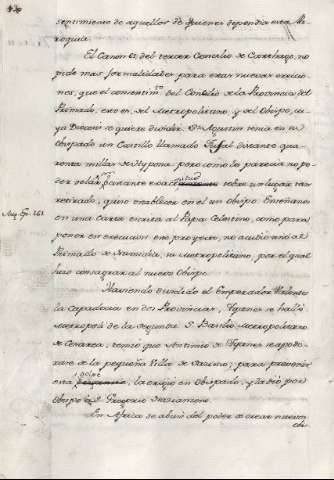 sentimiento de aquellos de quienes dependia esta Parroquia.
El Canon 42, del tercer Concilio de Carthago, no
pide mas formalidades para esas nuevas ereccio-
nes, que el consentim.to del Concilio de la Provincia del
Primado, esto es, del Metropolitano, y del Obispo, cu-
ya Diocesis se quiere dividir. S.n Agustin tenia en su
Obispado un Castillo llamado Fusal distante qua-
renta millas de Hyppona; pero como le parecia no po-
der velar con bastante exactitud sobre un lugar tan
Aug. Ep. 261.
retirado, quiso establecer en el un Obispo. Enseñanos
en una Carta escrita al Papa Celestino, como para
poner en execucion este proyecto, no acudio sino al
Primado de Numidia, su Metropolitano, por el qual
hizo consagrar al nuevo Obispo.
Haviendo dividido el Emperador Valente
la Capadocia en dos Provincias, Tyanes se halló
Metropoli de la segunda. S. Basilio Metropolitano
de Cesarea, temió que Antimio de Tyanes se apode-
rase de la pequeña Villa de Sasimo; para prevenir
este golpe, la erigió en Obispado, y la dió por
Obispo a S. Gregorio Nazianzeno.
En Africa se abusó del poder de crear nuevos